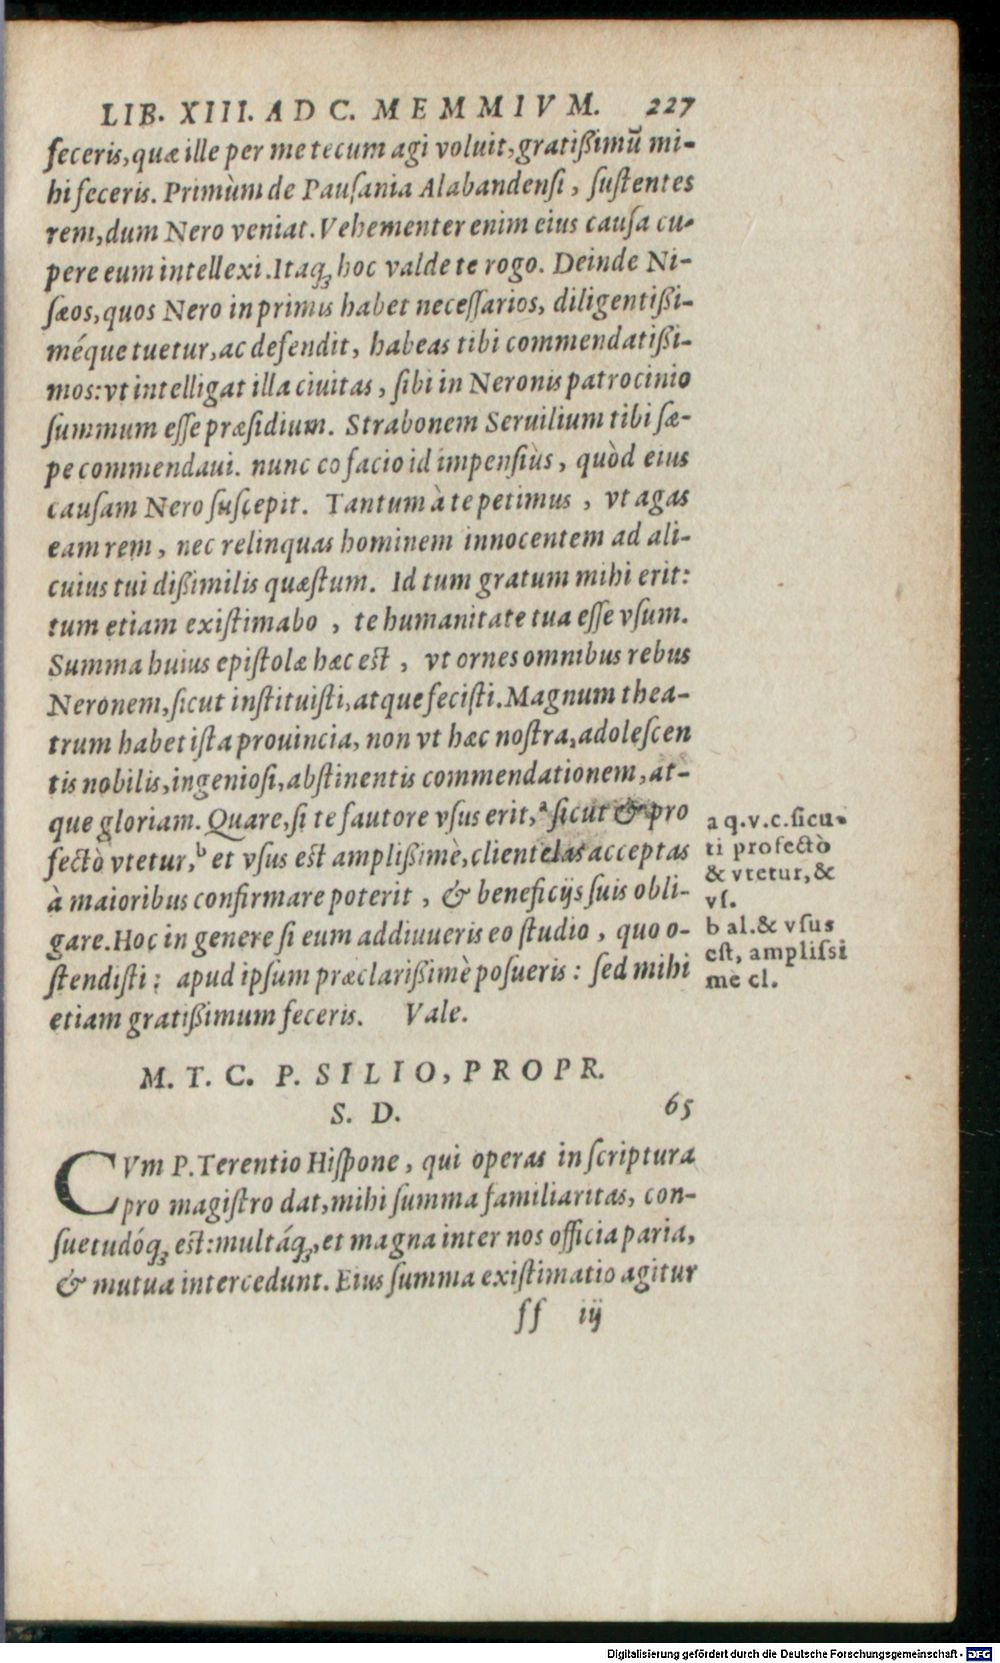 LIB. XIII. AD C. MEMMIVM. 227
feceris,quæ ille per me tecum agi voluit,gratißimū mi-
hi feceris. Primùm de Pausania Alabandensi, sustentes
rem,dum Nero veniat. Vehementer enim eius causa cu-
pere eum intellexi. Itaq; hoc valde te rogo. Deinde Ni-
sæos,quos Nero in primis habet necessarios, diligentißi-
méque tuetur,ac defendit, habeas tibi commendatißi-
mos:vt intelligat illa ciuitas, sibi in Neronis patrocinio
summum esse præsidium. Strabonem Seruilium tibi sæ-
pe commendaui. nunc eo facio id impensiùs, quòd eius
causam Nero suscepit. Tantum à te petimus, vt agas
eam rem, nec relinquas hominem innocentem ad ali-
cuius tui dißimilis quæstum. Id tum gratum mihi erit:
tum etiam existimabo, te humanitate tua esse vsum.
Summa huius epistolæ hæc est, vt ornes omnibus rebus
Neronem,sicut instituisti,atque fecisti. Magnum thea-
trum habet ista prouincia, non vt hæc nostra,adolescen
tis nobilis,ingeniosi,abstinentis commendationem,at-
que gloriam. Quare,si te fautore vsus erit,ᵃ sicut & pro
fectò vtetur,ᵇ et vsus est amplißimè,clientelas acceptas
à maioribus confirmare poterit, & beneficijs suis obli-
gare. Hoc in genere si eum adiuueris eo studio, quo o-
stendisti; apud ipsum præclarißimè posueris: sed mihi
etiam gratißimum feceris. Vale.
a q.v.c.sicu-
ti profectò
& vtetur,&
vs.
b al.& vsus
est, amplissi
me cl.
M. T. C. P. SILIO, PROPR.
S. D. 65
CVm P. Terentio Hispone, qui operas in scriptura
pro magistro dat,mihi summa familiaritas, con-
suetudóq; est:multáq;,et magna inter nos officia paria,
& mutua intercedunt. Eius summa existimatio agitur
ff iij
Digitalisierung gefördert durch die Deutsche Forschungsgemeinschaft - DFG